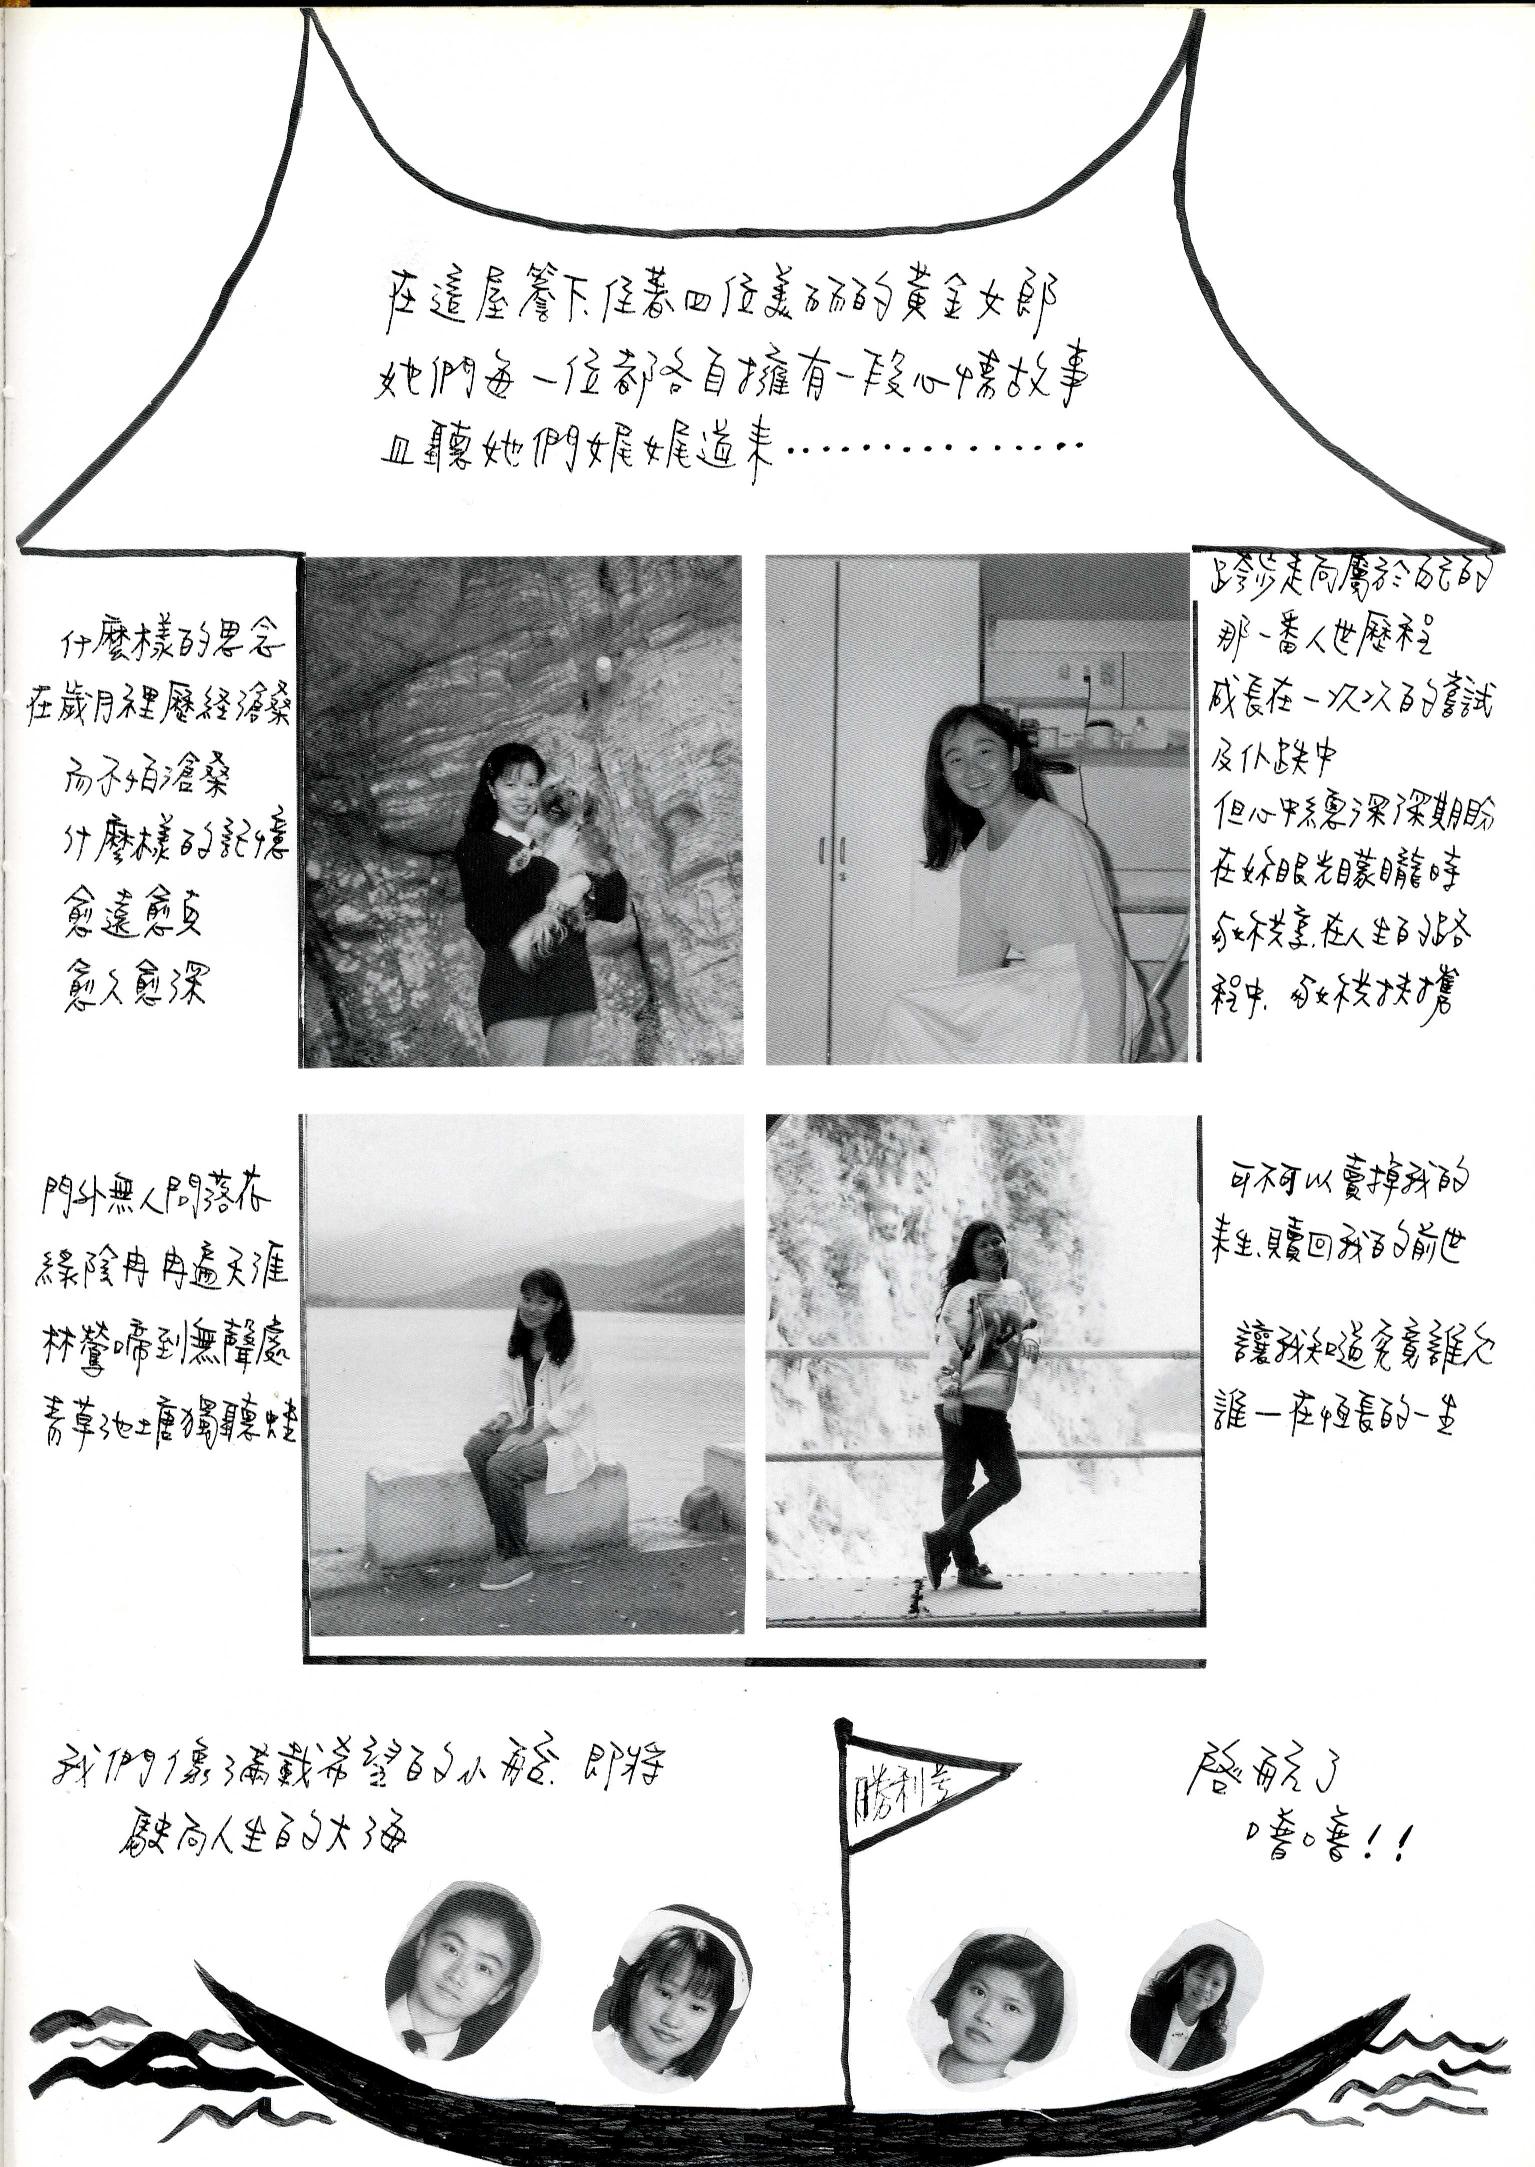 在這屋簷下住著四位美麗的黃金女郎
她們每一位都各自擁有一段心情故事
且聽她們娓娓道來················
什麼樣的思念
在歲月裡歷經滄桑
而不怕滄桑
什麼樣的記憶
愈遠愈真
愈久愈深
跨步走向屬於自己的
那一番人世歷程
成長在一次次的嘗試
及仆跌中
但心中總深深期盼
在妳眼光矇矓時
與妳共享.在人生的路
程中.與妳共扶攜
門外無人問落花
綠陰冉冉遍天涯
林鶯啼到無聲處
青草池塘獨聽蛙
可不可以賣掉我的
來生、贖回我的前世
讓我知道究竟誰欠
誰一在恆長的一生
我們像滿載希望的小船.即將
駛向人生的大海
勝利號
啓航了
嘻嘻!!